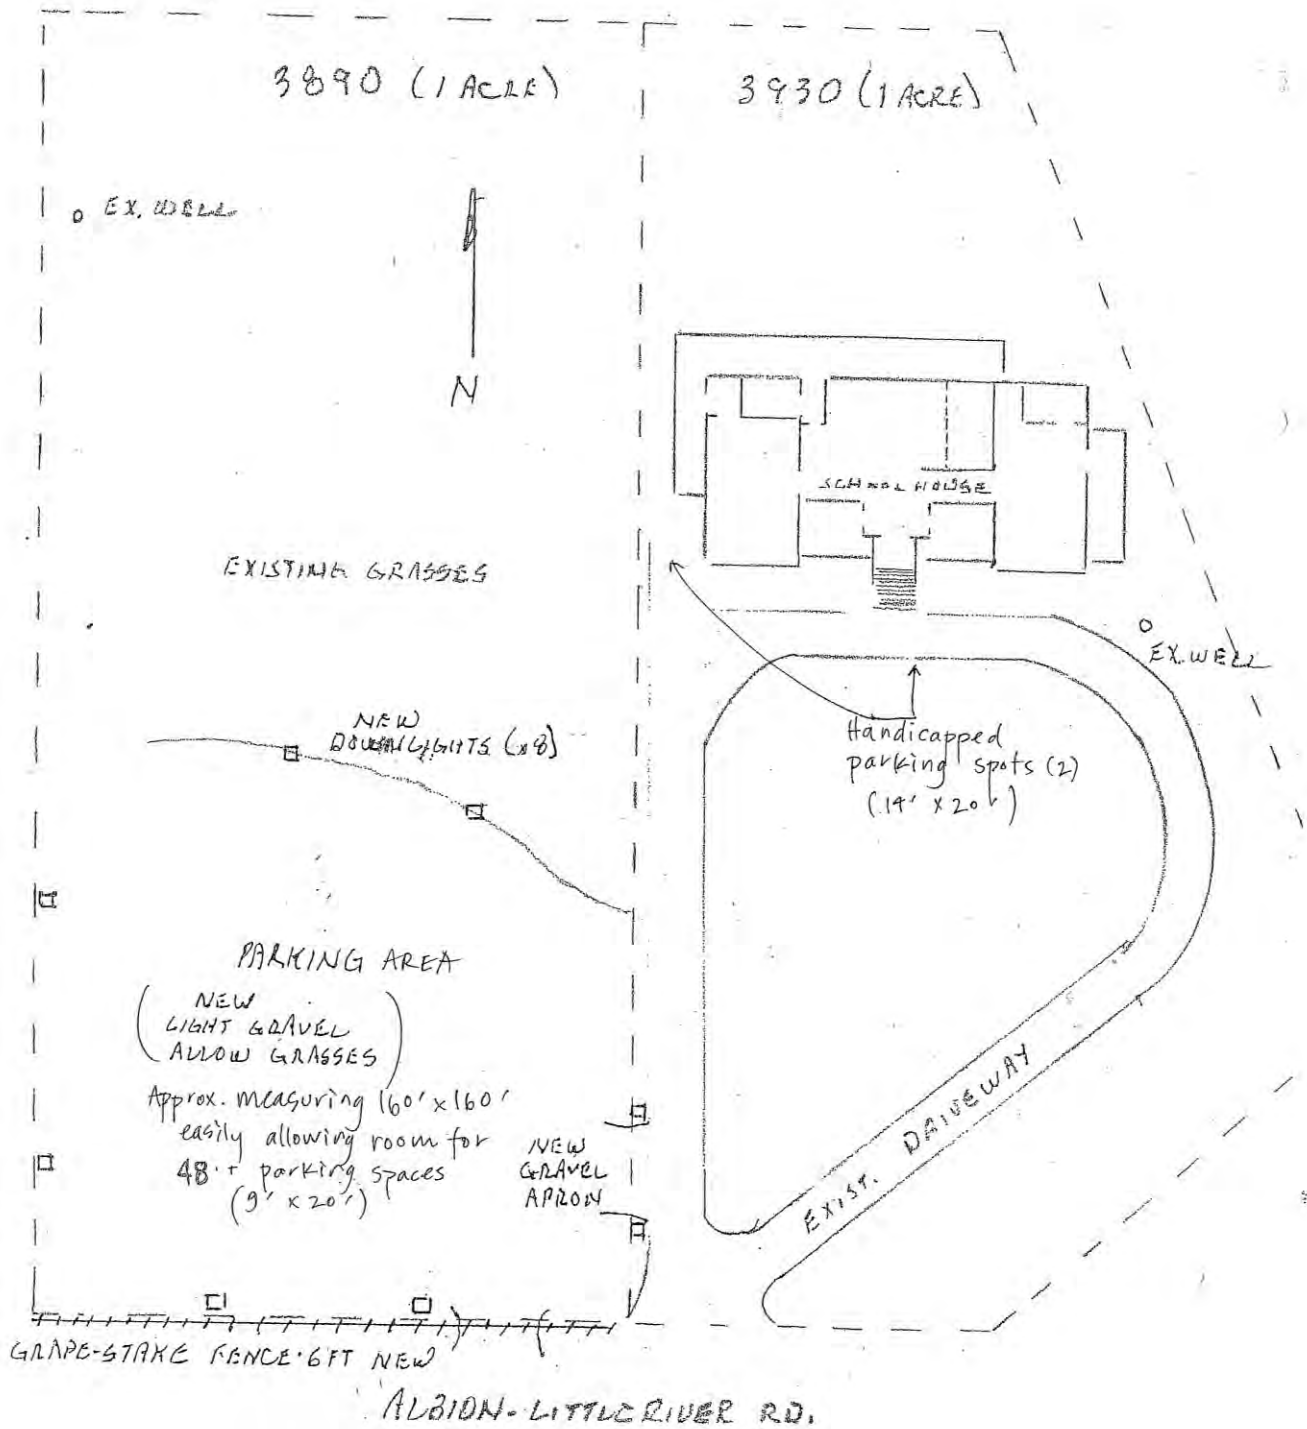 3890 (1 ACRE)
3930 (1 ACRE)
EX. WELL
N
SCHOOL HOUSE
EXISTING GRASSES
EX. WELL
NEW
DOWNLIGHTS (x8)
Handicapped
parking spots (2)
(14' x 20')
PARKING AREA
(NEW
LIGHT GRAVEL
ALLOW GRASSES)
Approx. measuring 160' x 160'
easily allowing room for
48+ parking spaces
(9' x 20')
NEW
GRAVEL
APRON
EXIST. DRIVEWAY
GRAPE-STAKE FENCE·6FT NEW
ALBION-LITTLERIVER RD.